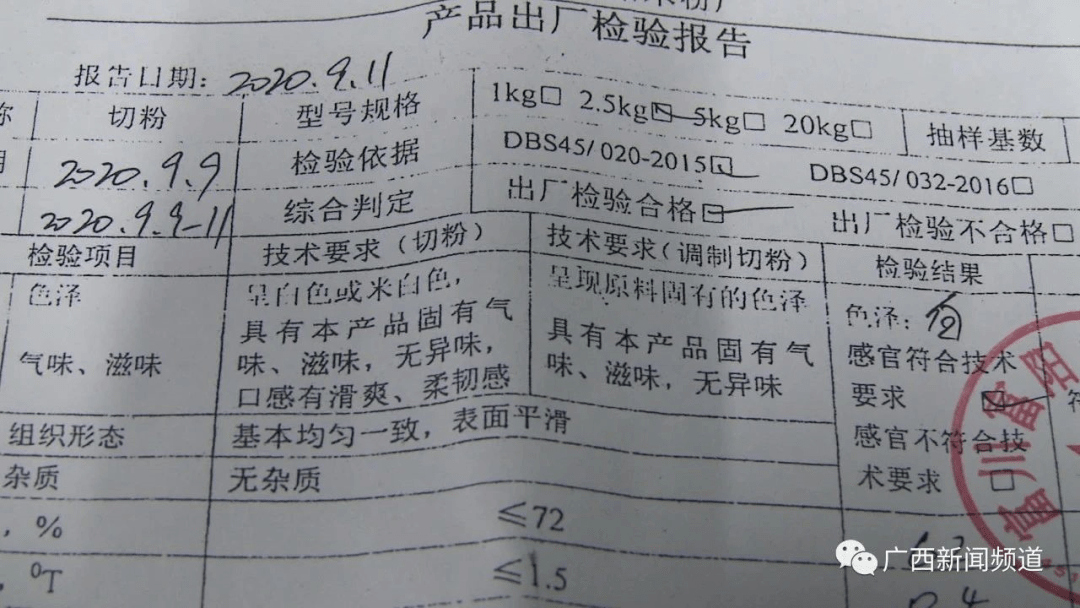 产品出厂检验报告
报告日期：2020.9.11
称 切粉 型号规格 1kg□ 2.5kg☑ 5kg□ 20kg□ 抽样基数
期 2020.9.9 检验依据 DBS45/020-2015☑ DBS45/032-2016□
2020.9.9-11 综合判定 出厂检验合格☑ 出厂检验不合格□
检验项目 技术要求（切粉） 技术要求（调制切粉） 检验结果
色泽 呈白色或米白色， 呈现原料固有的色泽 色泽：白
气味、滋味 具有本产品固有气 具有本产品固有气 感官符合技术
味、滋味，无异味， 味、滋味，无异味 要求 ☑ 符
口感有滑爽、柔韧感
组织形态 基本均匀一致，表面平滑 感官不符合技
杂质 无杂质 术要求 □
，% ≤72
，⁰T ≤1.5
富川富阳
广西新闻频道